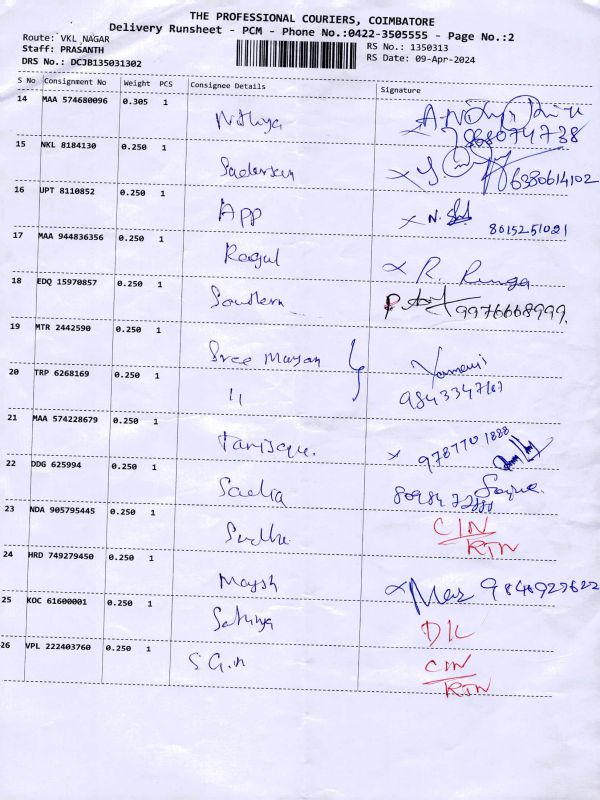 THE PROFESSIONAL COURIERS, COIMBATORE
Delivery Runsheet - PCM - Phone No.:0422-3505555 - Page No.:2
Route: VKL_NAGAR
RS No.: 1350313
Staff: PRASANTH
RS Date: 09-Apr-2024
DRS No.: DCJB135031302
S No Consignment No Weight PCS Consignee Details Signature
14 MAA 574680096 0.305 1 Nithya
9880074738
15 NKL 8184130 0.250 1 6380614102
16 UPT 8110852 0.250 1 APP N. 8015251021
17 MAA 944836356 0.250 1 Ragul R.
18 EDQ 15970857 0.250 1 Southern 9976668999.
19 MTR 2442590 0.250 1 Sree Mayan
20 TRP 6268169 0.250 1 11 9843347
21 MAA 574228679 0.250 1 9787701888
22 DDG 625994 0.250 1 Sadia
23 NDA 905795445 0.250 1 Sudha CIN
RTN
24 HRD 749279450 0.250 1 9840927622
25 KOC 61600001 0.250 1 DL
26 VPL 222403760 0.250 1 S.G.n CIN
RTN